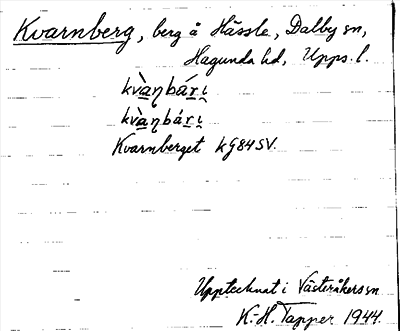 Kvarnberg, berg å Hässle, Dalby sn,
Hagunda hd, Upps. l.
kvànbári
kvànbári
Kvarnberget kG84SV.
Upptecknat i Västeråkers sn
K.-H. Tapper 1944.